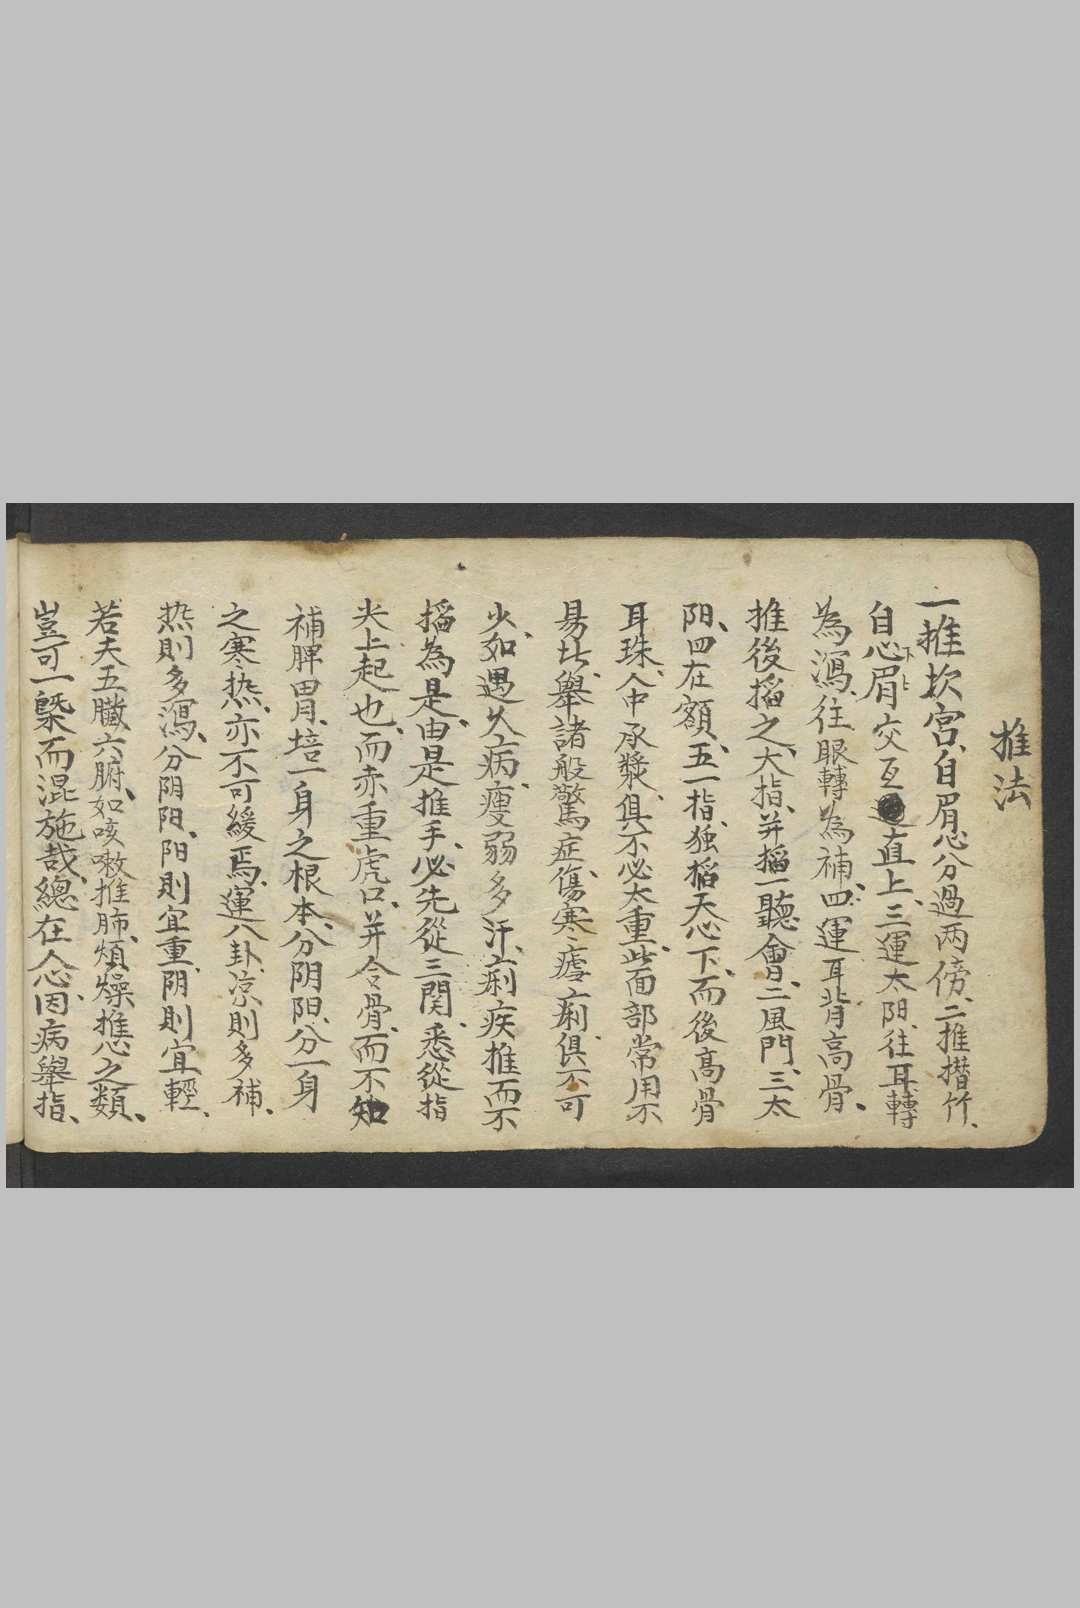 推法
一推坎宮、自眉心分過兩傍、二推攢竹、
自心眉交互直上、三運太阳、往耳轉
為瀉、往眼轉為補、四運耳背高骨、
推後搯之、大指、并搯一聽會、二風門、三太
阳、四在額、五一指、独搯天心下、而後高骨
耳珠、人中承漿、俱不必太重、此面部常用不
易此、舉諸般驚症、傷寒瘧痢、俱不可
少、如遇久病、瘦弱多汗、痢疾推而不
搯為是、由是推手、必先從三関、悉從指
尖上起也、而赤重虎口、并合骨、而不知
補脾胃、培一身之根本、分阴阳、分一身
之寒热、亦不可緩焉、運八卦、凉則多補、
热則多瀉、分阴阳、阳則宜重、阴則宜輕、
若夫五臟六腑、如咳嗽推肺、煩燥推心之類、
豈可一槩而混施哉、總在人心、因病舉指、